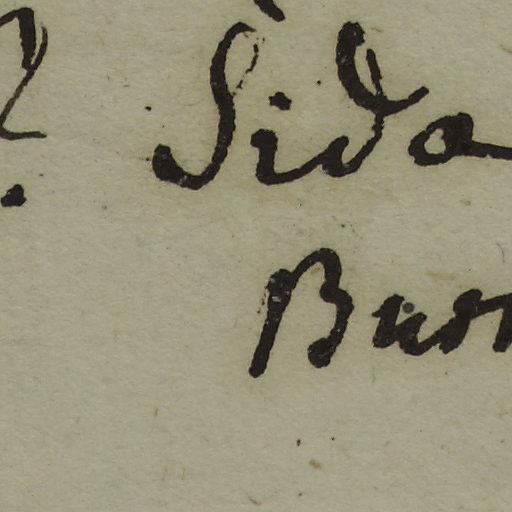 ? Sida
Bur